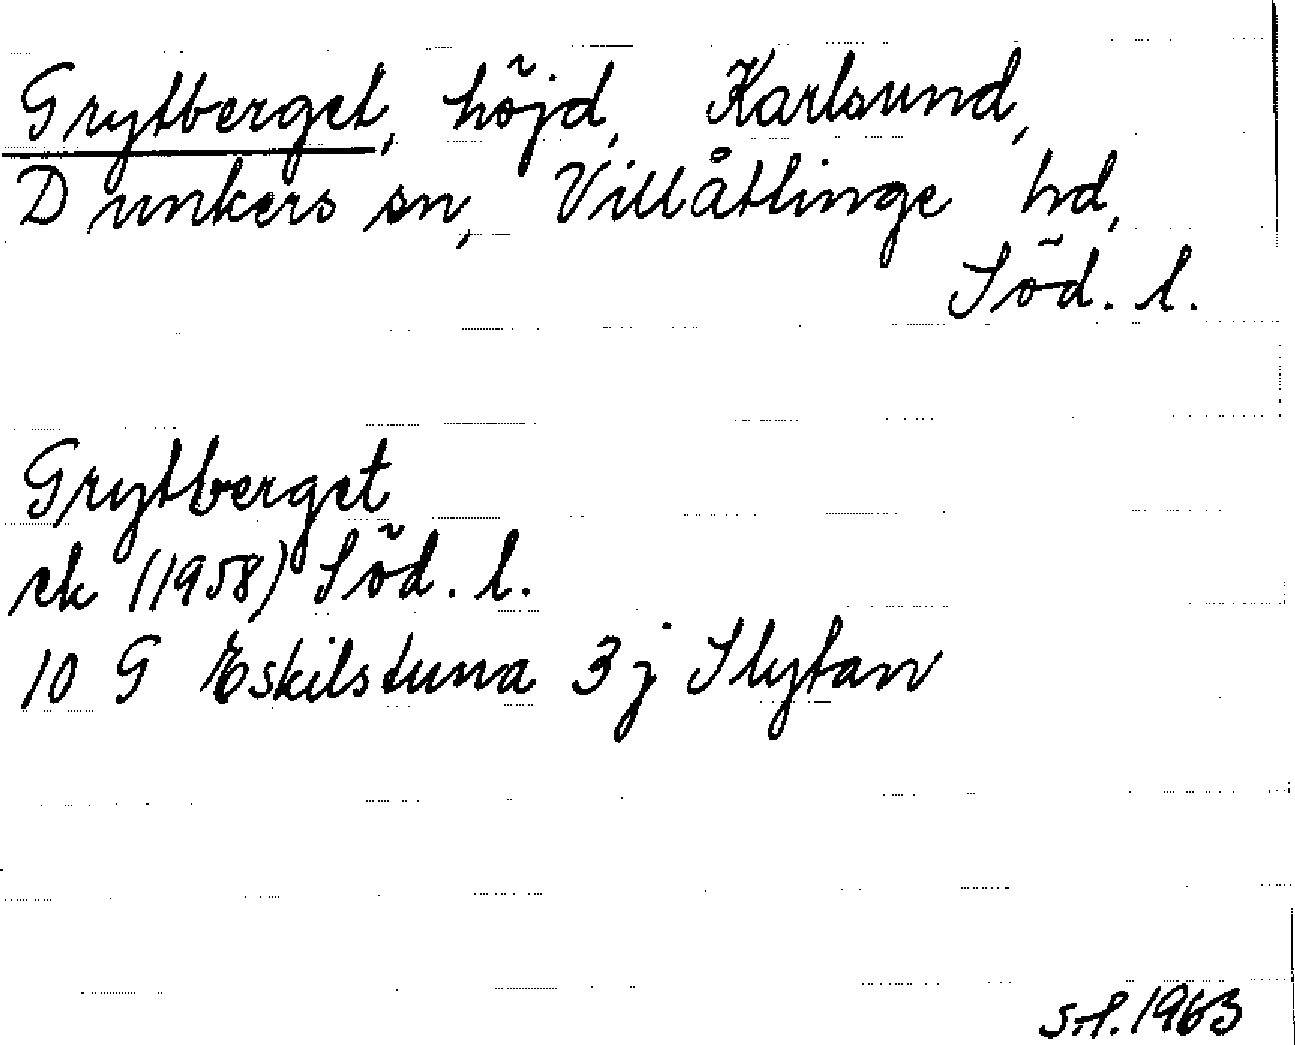 Grytberget, höjd, Karlsund,
Dunkers sn, Villåttinge hd,
Söd. l.
Grytberget
ek (1958) Söd. l.
10 G Eskilstuna 3 j Slytan
1963